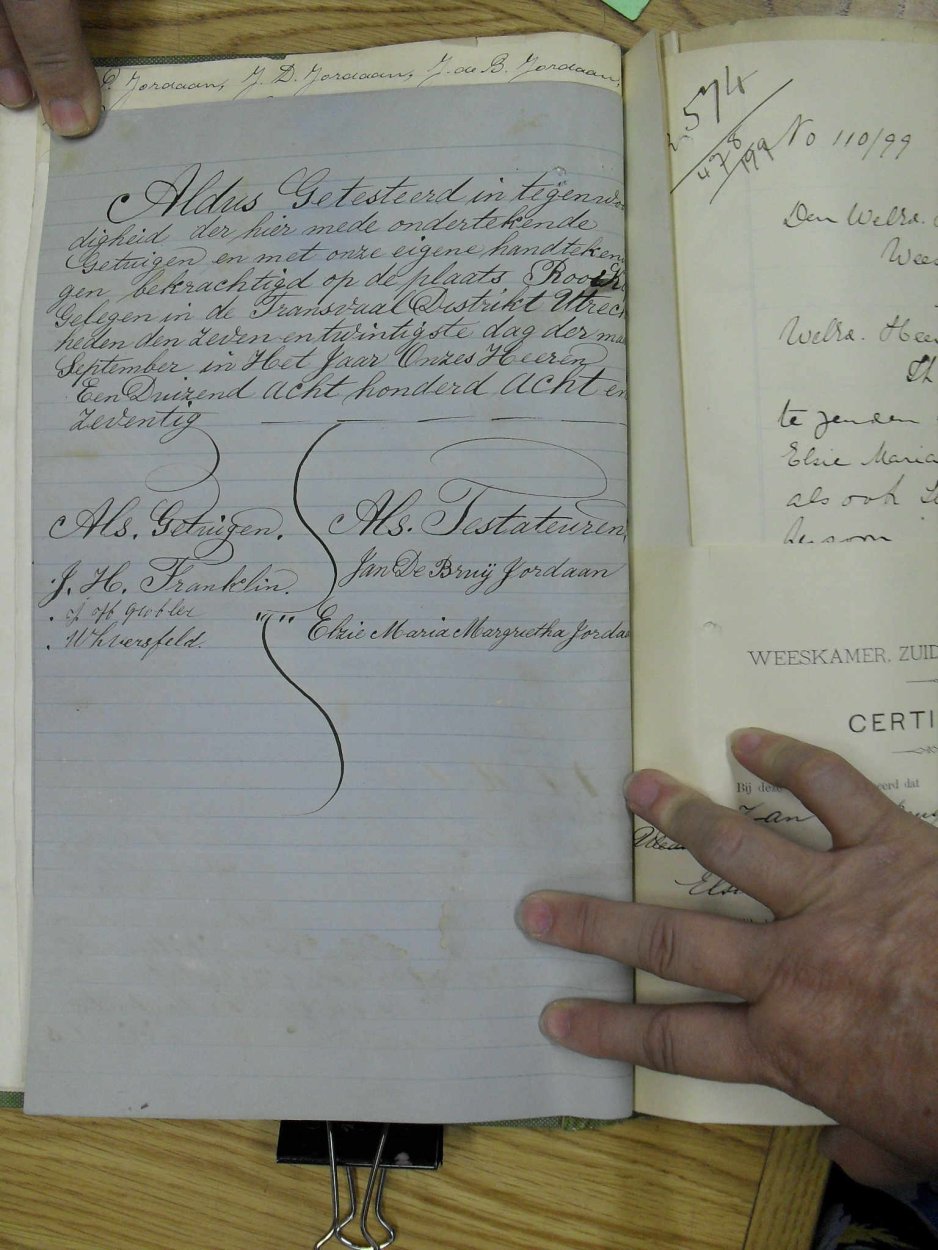 P. Jordaan, J. D. Jordaan, J. de B. Jordaan,
Aldus Getesteerd in tegenwo
digheid der hier mede ondertekende
Getuigen en met onze eigene handteken
gen bekrachtigd op de plaats
Gelegen in de Transvaal Distrikt Utrech
heden den zeven en twintigste dag der ma
September in Het Jaar Onzes Heeren
Een Duizend Acht honderd Acht en
Zeventig
Als. Getuigen.
J. H. Franklin.
Als. Testateuren
Jan De Bruij Jordaan
Elzie Maria Margrietha Jordaa
574
478/99
No 110/99
Den Weled.
Wees
Weled. Heer
te zenden
Elzie Maria
als ook
WEESKAMER, ZUID
CERTI
Bij deze
eerd dat
Jan
Elsi